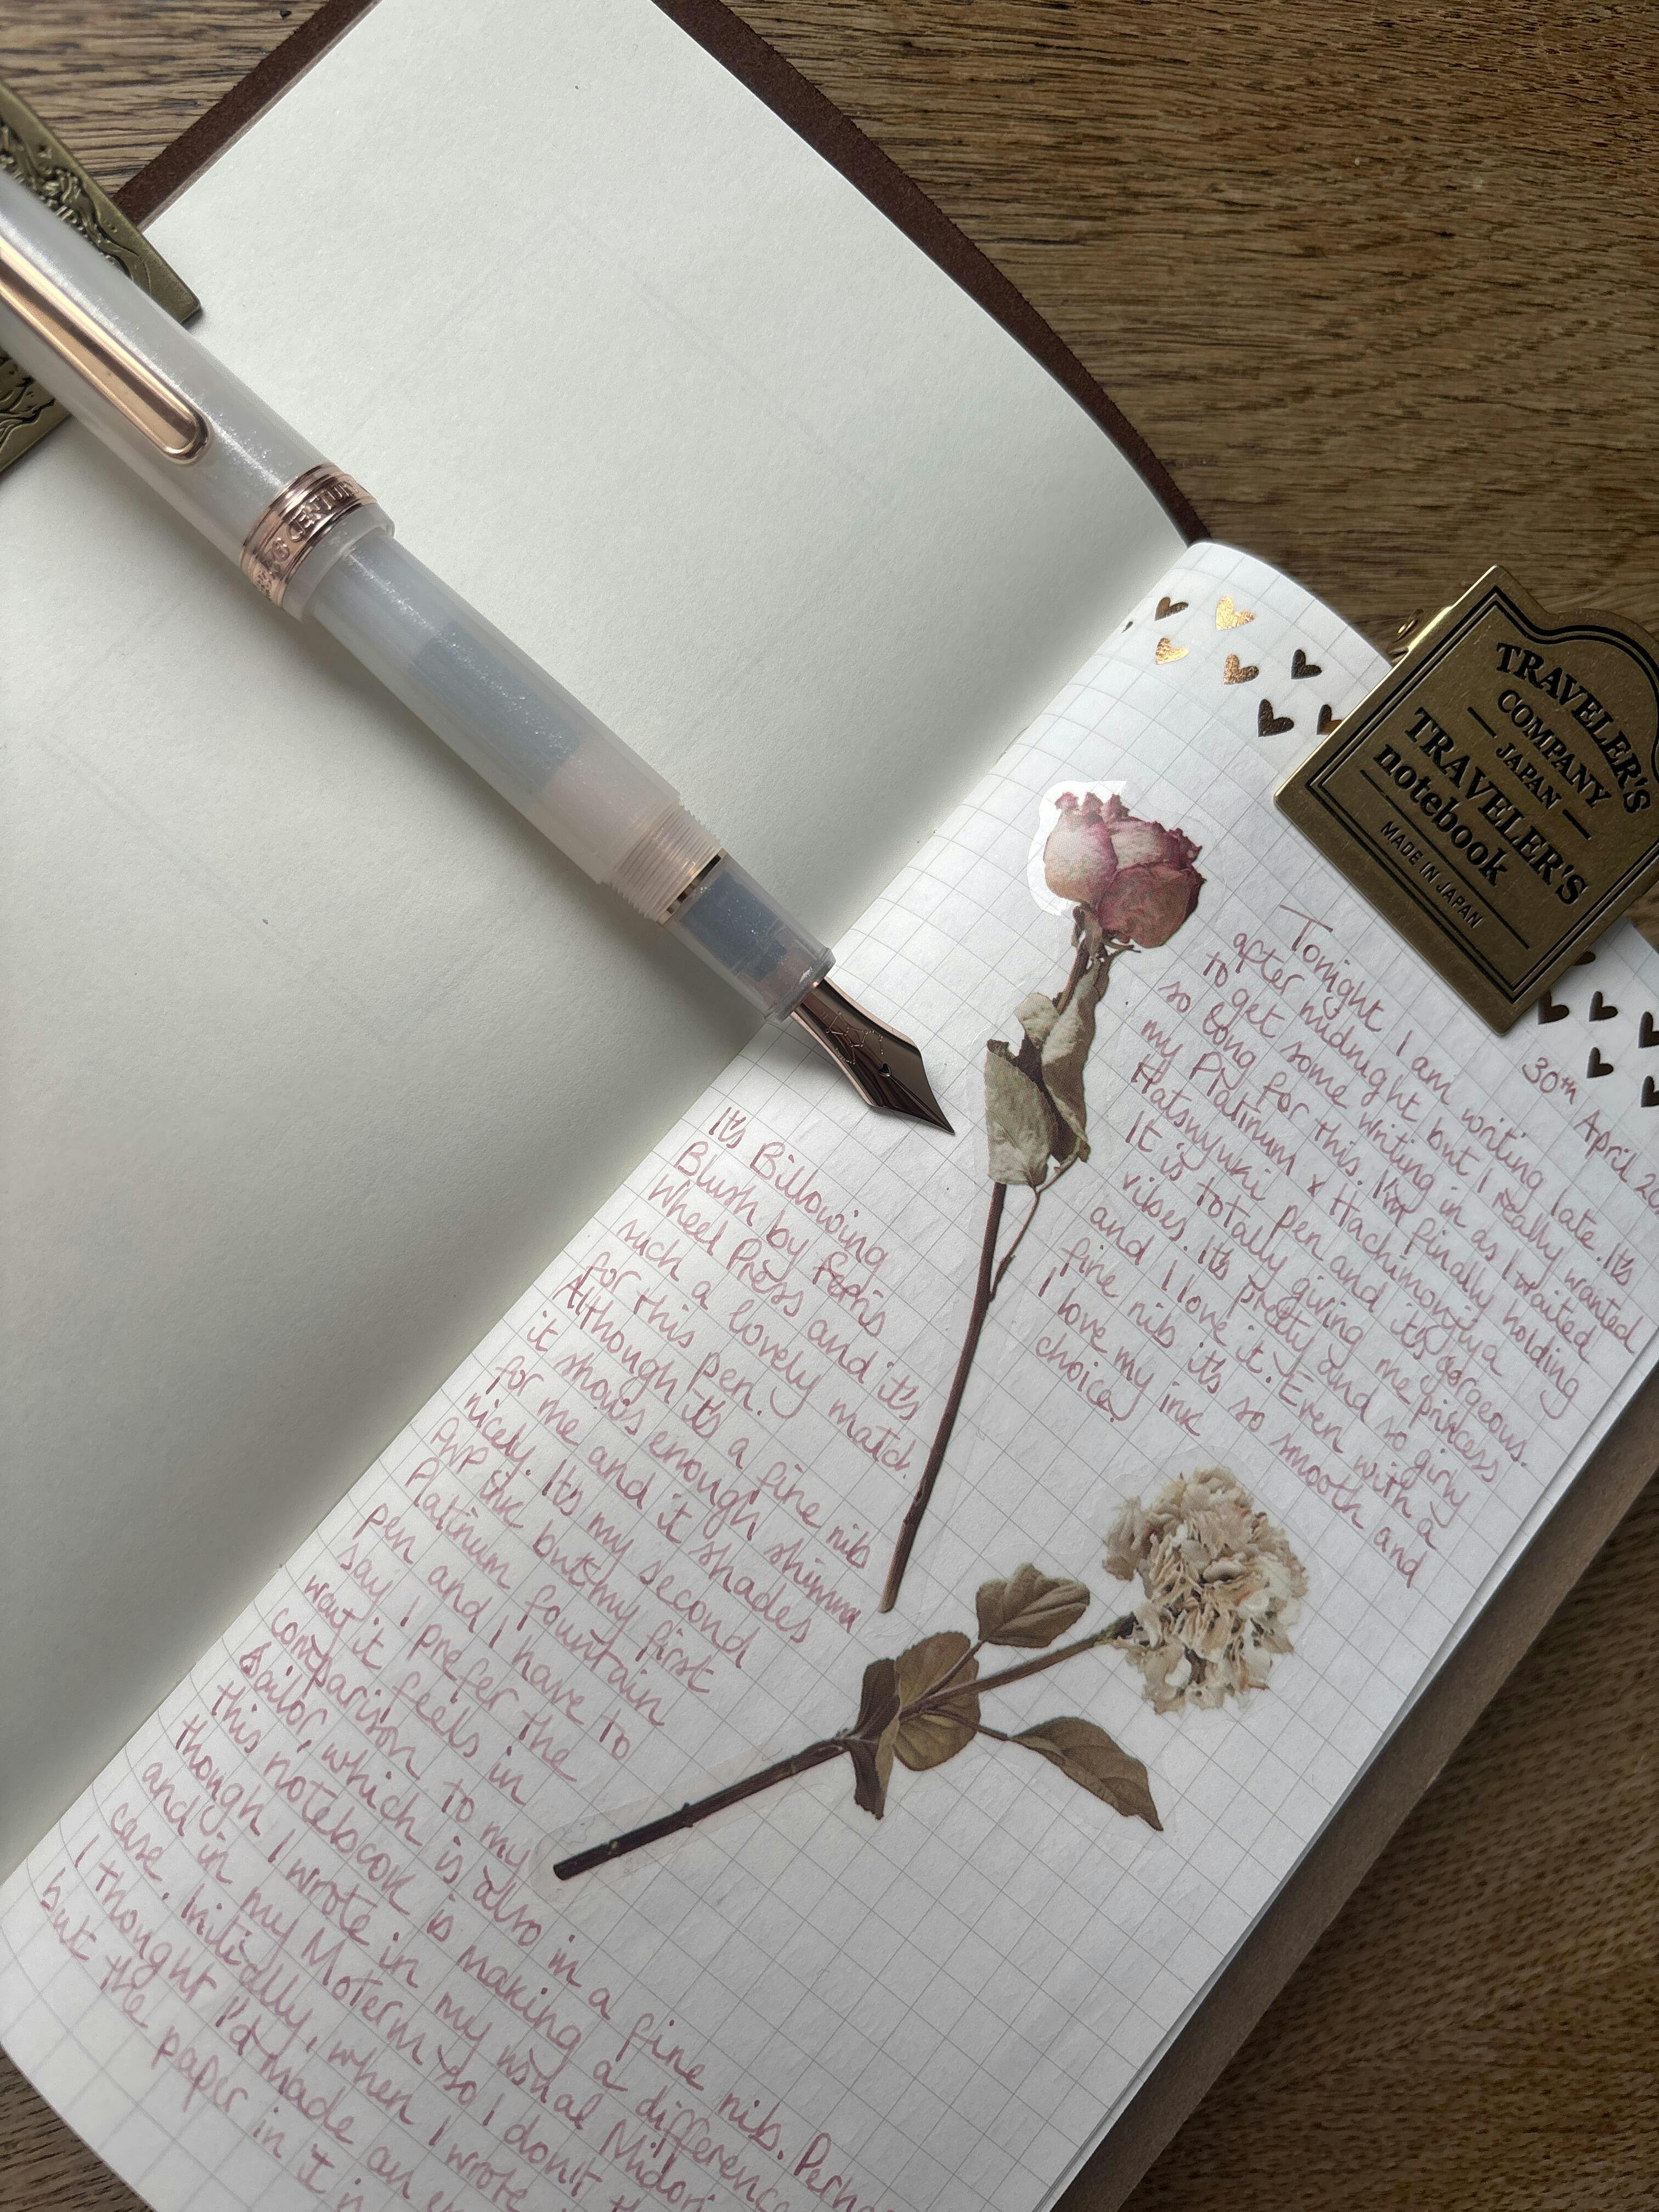 CENTURY
TRAVELER'S
COMPANY
JAPAN
TRAVELER'S
notebook
MADE IN JAPAN
30th April 20
Tonight I am writing late. It's
after midnight but I really wanted
to get some writing in as I waited
so long for this. I'm finally holding
my Platinum x Hachimonjiya
Hatsuyuki pen and it's gorgeous.
It is totally giving me princess
vibes. It's pretty and so girly
and I love it. Even with a
fine nib it's so smooth and
I love my ink
choice.
It's Billowing
Blush by Ferris
Wheel Press and it's
such a lovely match
for this pen.
Although it's a fine nib
it shows enough shimmer
for me and it shades
nicely. It's my second
FWP ink but my first
Platinum fountain
pen and I have to
say I prefer the
way it feels in
comparison to my
Sailor, which is also in a fine nib. Perhaps
this notebook is making a difference
though I wrote in my usual Midori
and in my Moterm so I don't
case. Initially, when I wrote
I thought I'd made an
but the paper in it is